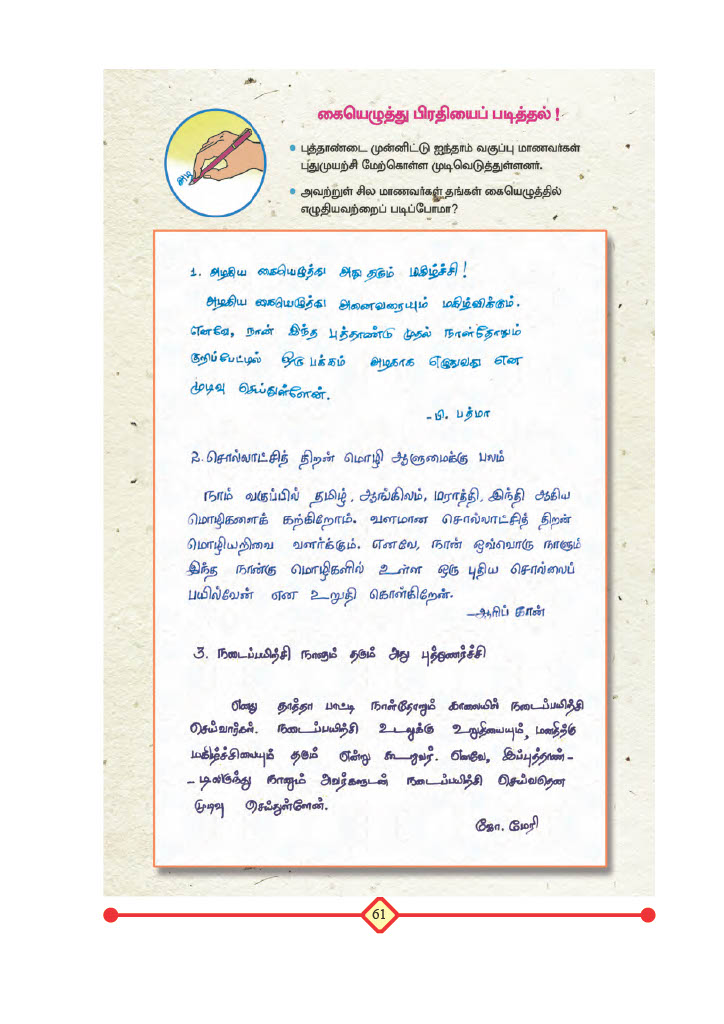 கையெழுத்து பிரதியைப் படித்தல் !
• புத்தாண்டை முன்னிட்டு ஐந்தாம் வகுப்பு மாணவர்கள்
புதுமுயற்சி மேற்கொள்ள முடிவெடுத்துள்ளனர்.
• அவற்றுள் சில மாணவர்கள் தங்கள் கையெழுத்தில்
எழுதியவற்றைப் படிப்போமா?
அடி
1. அழகிய கையெழுத்து அது தரும் மகிழ்ச்சி!
அழகிய கையெழுத்து அனைவரையும் மகிழ்விக்கும்.
எனவே, நான் இந்த புத்தாண்டு முதல் நாள்தோறும்
குறிப்பேட்டில் ஒரு பக்கம் அழகாக எழுதுவது என
முடிவு செய்துள்ளேன்.
-பி. பத்மா
2. சொல்லாட்சித் திறன் மொழி ஆளுமைக்கு பலம்
நாம் வகுப்பில் தமிழ், ஆங்கிலம், மராத்தி, இந்தி ஆகிய
மொழிகளைக் கற்கிறோம். வளமான சொல்லாட்சித் திறன்
மொழியறிவை வளர்க்கும். எனவே, நான் ஒவ்வொரு நாளும்
இந்த நான்கு மொழிகளில் உள்ள ஒரு புதிய சொல்லைப்
பயில்வேன் என உறுதி கொள்கிறேன்.
-ஆரிப் கான்
3. நடைப்பயிற்சி நாளும் தரும் அது புத்துணர்ச்சி
எனது தாத்தா பாட்டி நாள்தோறும் காலையில் நடைப்பயிற்சி
செய்வார்கள். நடைப்பயிற்சி உடலுக்கு உறுதியையும், மனதிற்கு
மகிழ்ச்சியையும் தரும் என்று கூறுவர். எனவே, இப்புத்தாண்-
-டிலிருந்து நானும் அவர்களுடன் நடைப்பயிற்சி செய்வதென
முடிவு செய்துள்ளேன்.
ஜோ. மேரி
61